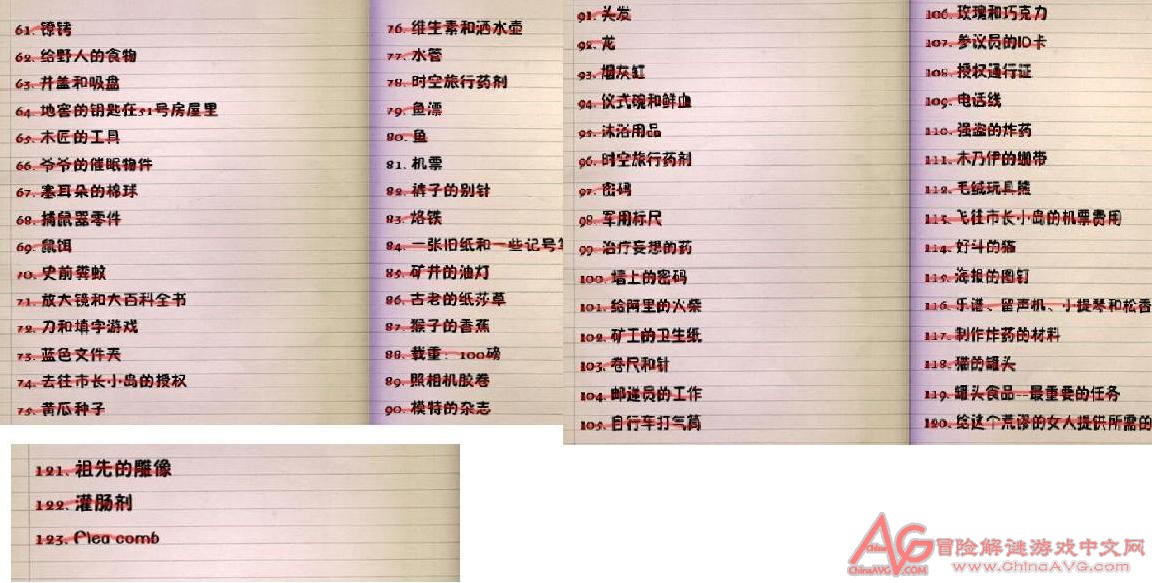 61. 镣铐
62. 给野人的食物
63. 井盖和吸盘
64. 地窖的钥匙在51号房屋里
65. 木匠的工具
66. 爷爷的催眠物件
67. 塞耳朵的棉球
68. 捕鼠器零件
69. 鼠饵
70. 史前粪蚊
71. 放大镜和大百科全书
72. 刀和填字游戏
73. 蓝色文件夹
74. 去往市长小岛的授权
75. 黄瓜种子
76. 维生素和洒水壶
77. 水管
78. 时空旅行药剂
79. 鱼漂
80. 鱼
81. 机票
82. 裤子的别针
83. 烙铁
84. 一张旧纸和一些记号
85. 矿井的油灯
86. 古老的纸莎草
87. 猴子的香蕉
88. 载重：100磅
89. 照相机胶卷
90. 模特的杂志
91. 头发
92. 龙
93. 烟灰缸
94. 仪式碗和鲜血
95. 沐浴用品
96. 时空旅行药剂
97. 密码
98. 军用标尺
99. 治疗妄想的药
100. 墙上的密码
101. 给阿里的火柴
102. 矿工的卫生纸
103. 卷尺和针
104. 邮递员的工作
105. 自行车打气筒
106. 玫瑰和巧克力
107. 参议员的ID卡
108. 授权通行证
109. 电话线
110. 强盗的炸药
111. 木乃伊的绷带
112. 毛绒玩具熊
113. 飞往市长小岛的机票费用
114. 好斗的猫
115. 海报的图钉
116. 乐谱、留声机、小提琴和松香
117. 制作炸药的材料
118. 猫的罐头
119. 罐头食品--最重要的任务
120. 给这个荒谬的女人提供所需的
121. 祖先的雕像
122. 灌肠剂
123. Flea comb
China
AVG
ChinaAVG.COM
冒险解谜游戏中文网
www.ChinaAVG.com